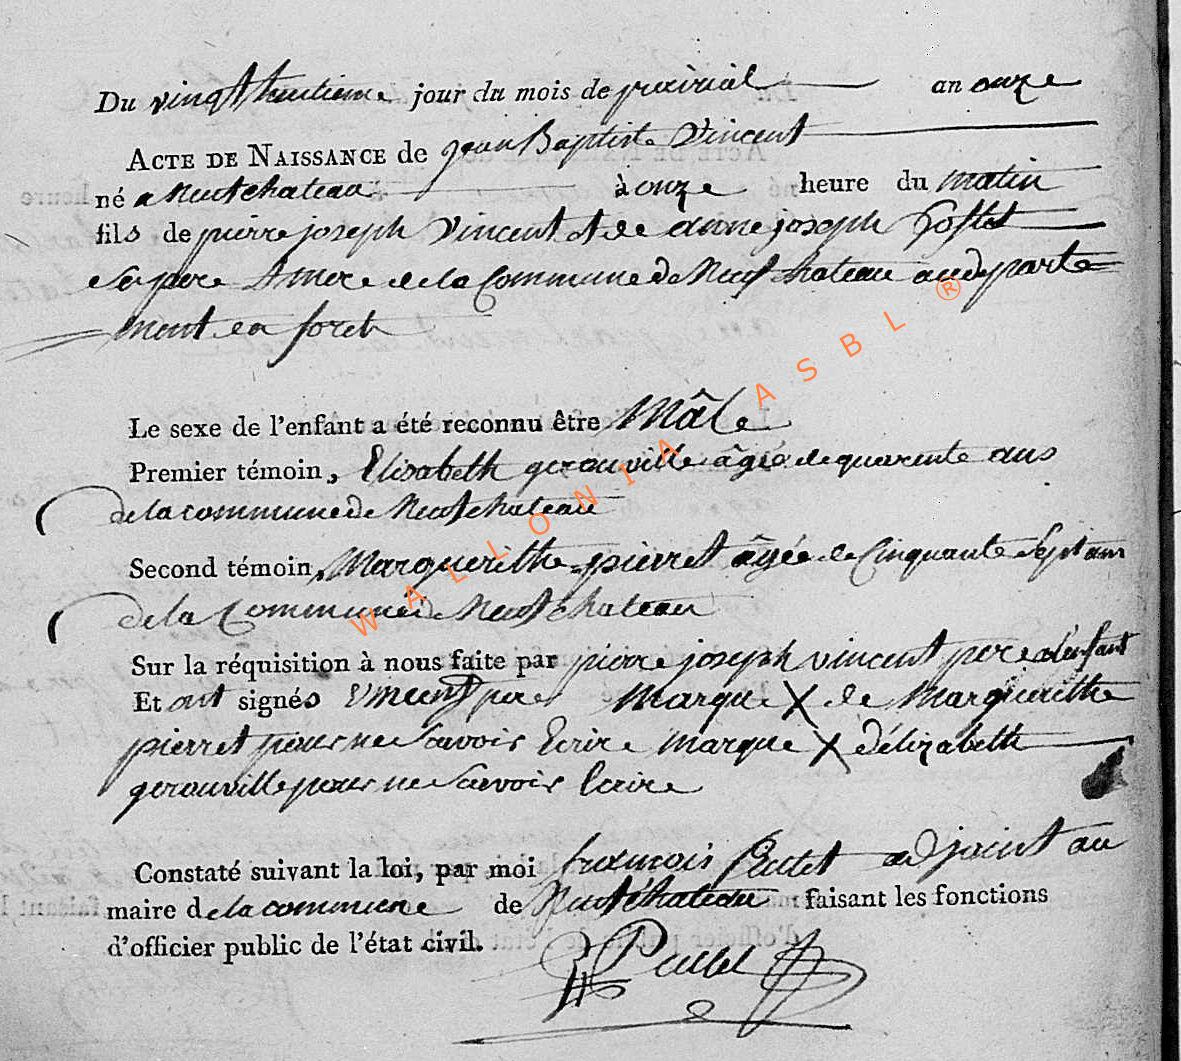 Du vingt huitieme jour du mois de prairial an onze
ACTE DE NAISSANCE de jean Baptiste Vincent
né a Neufchateau à onze heure du matin
fils de pierre joseph Vincent et de anne joseph
pere et mere de la Commune de Neufchateau au departe
ment de la foret
Le sexe de l'enfant a été reconnu être Mâle
Premier témoin, Elisabeth gerouville âgée de quarente ans
de la commune de Neufchateau
Second témoin, Marguerithe pierret âgée de Cinquante Sept ans
de la Commune de Neufchateau
Sur la réquisition à nous faite par pierre joseph vincent pere de l'enfant
Et ont signés Vincent pere Marque X de Marguerithe
pierret pour ne Savoir Ecrire marque X d'élizabeth
gerouville pour ne Savoir Ecrire
Constaté suivant la loi, par moi francois adjoint au
maire de la commune de Neufchateau faisant les fonctions
d'officier public de l'état civil.
WALLONIA ASBL ®